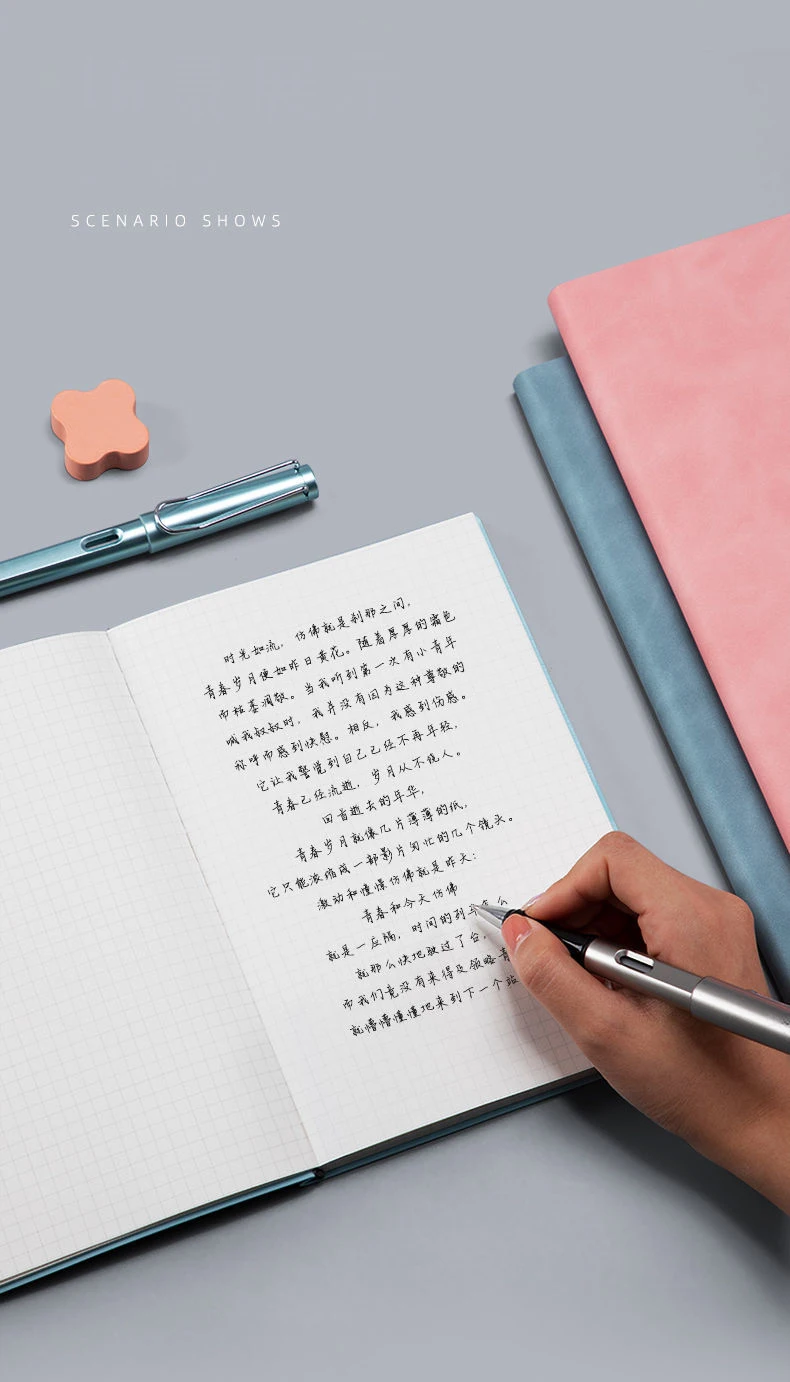 SCENARIO SHOWS
时光如流，仿佛就是刹那之间，
青春岁月便如昨日黄花。随着厚厚的霜色
而枯萎凋敝。当我听到第一次有小青年
喊我叔叔时，我并没有因为这种尊敬的
称呼而感到快慰。相反，我感到伤感。
它让我警觉到自己已经不再年轻，
青春已经流逝，岁月从不饶人。
回首逝去的年华，
青春岁月就像几片薄薄的纸，
它只能浓缩成一部影片匆忙的几个镜头。
激动和憧憬仿佛就是昨天；
青春和今天仿佛
就是一反隔，时间的列车怎么
就那么快地驶过了台，
而我们竟没有来得及领略青
就懵懵懂懂地来到下一个站